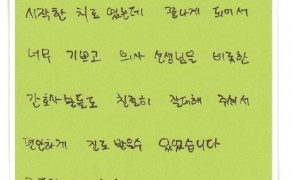 시작한 치료 였는데 잘나게 되어서
너무 기쁘고 의사 선생님을 비롯한
간호사 분들도 친절히 잘대해 주셔서
편안하게 진료 받을수 있었습니다